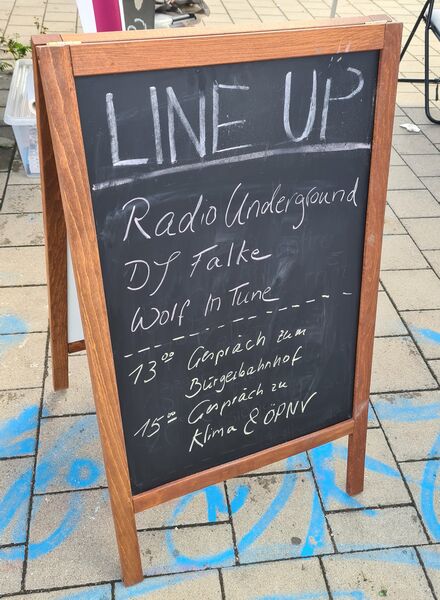 LINE UP
Radio Underground
DJ Falke
Wolf In Tune
13⁰⁰ Gespräch zum
Bürgerbahnhof
15⁰⁰ Gespräch zu
Klima & ÖPNV